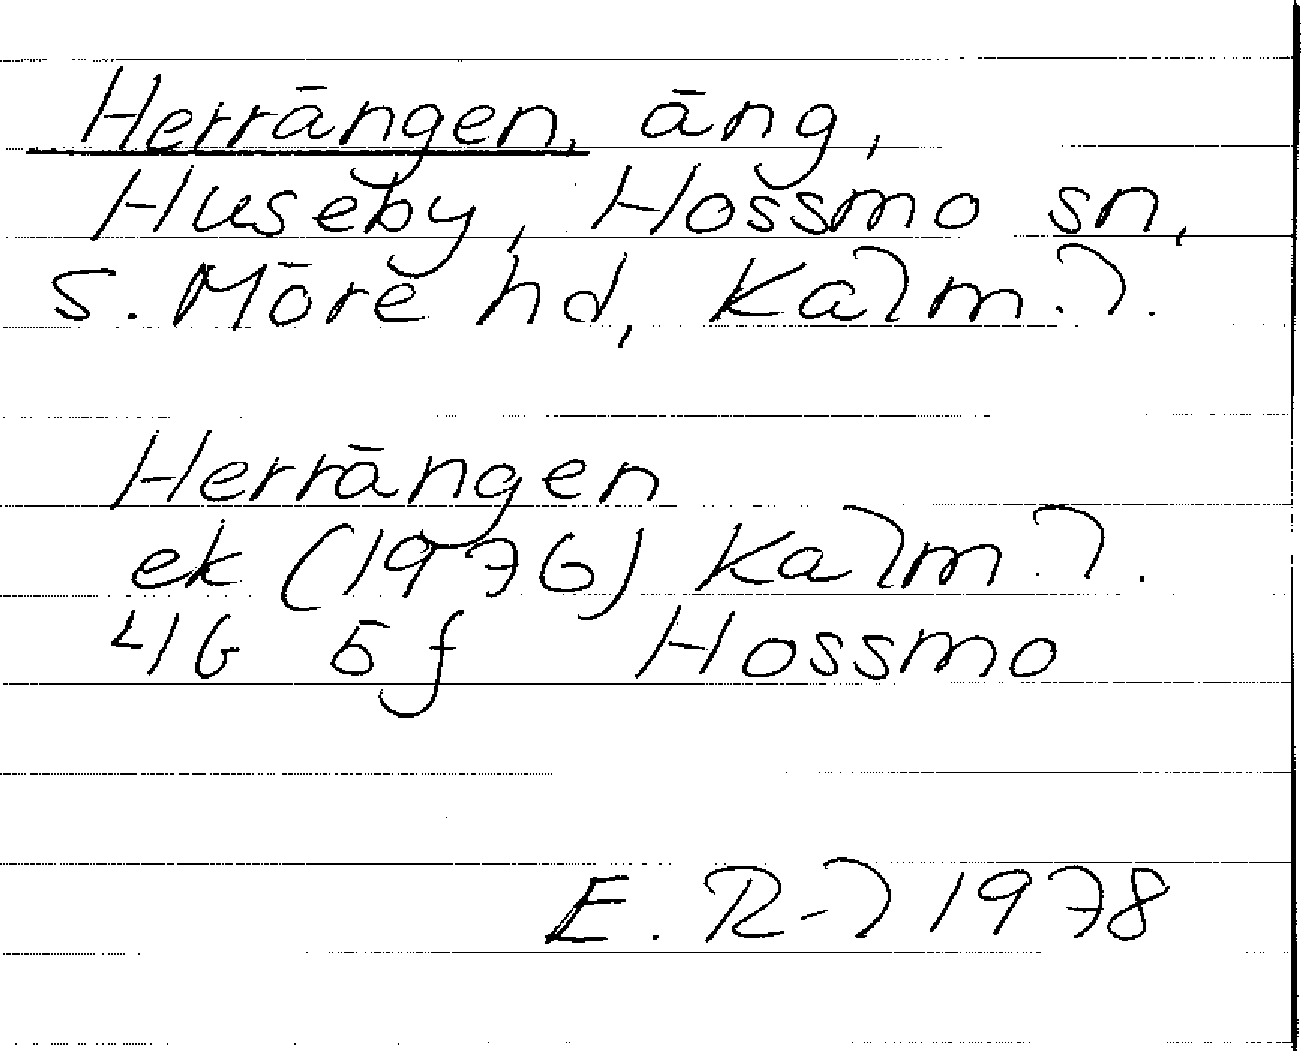 Herrängen, äng,
Huseby, Hossmo sn,
S. Möre hd, Kalm. l.
Herrängen
ek (1976) Kalm. l.
4G 5f Hossmo
E. R-l 1978